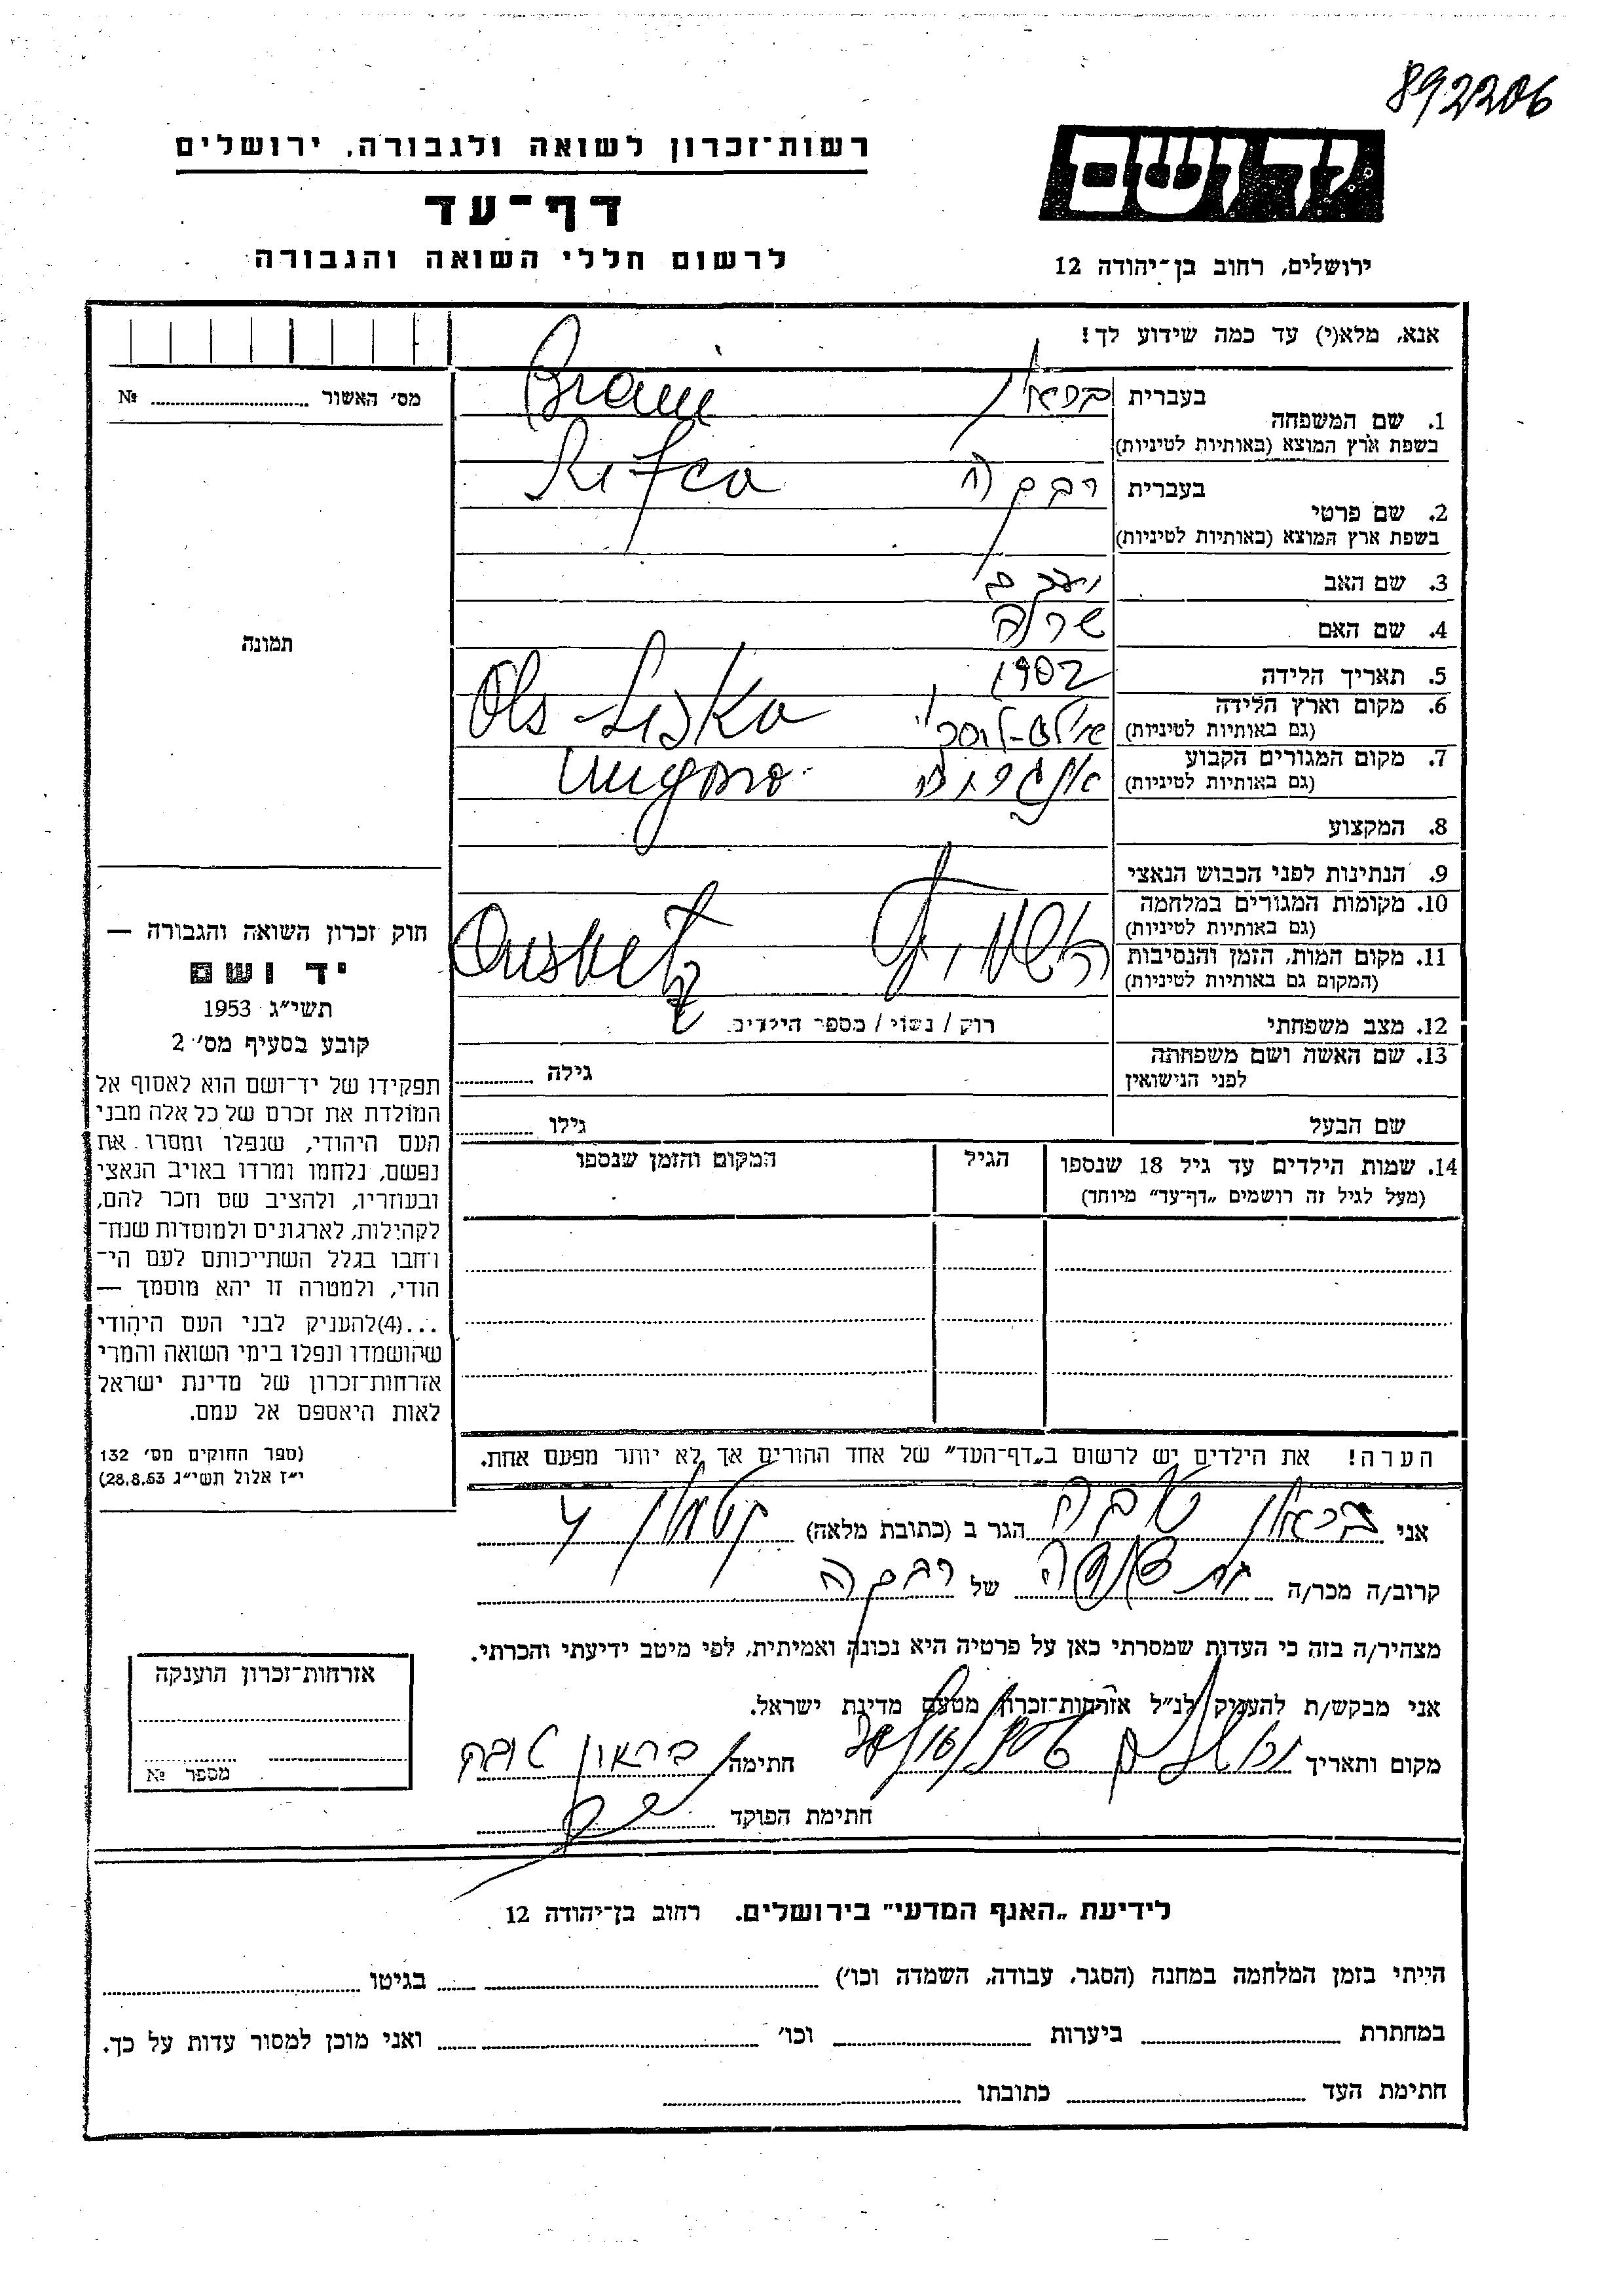 892206
רשות־זכרון לשואה ולגבורה, ירושלים
דף־עד
לרשום חללי השואה והגבורה
יד ושם
ירושלים, רחוב בן־יהודה 12
אנא, מלא(י) עד כמה שידוע לך!
מס׳ האשור № 
1. שם המשפחה
בעברית בראון
בשפת ארץ המוצא (באותיות לטיניות) Braun
2. שם פרטי
בעברית רבקה
בשפת ארץ המוצא (באותיות לטיניות) Rifca
3. שם האב
4. שם האם
5. תאריך הלידה 1902
6. מקום וארץ הלידה
(גם באותיות לטיניות) Ols-Liska
7. מקום המגורים הקבוע
(גם באותיות לטיניות)
8. המקצוע
9. הנתינות לפני הכבוש הנאצי
10. מקומות המגורים במלחמה
(גם באותיות לטיניות)
11. מקום המות, הזמן והנסיבות
(המקום גם באותיות לטיניות)
12. מצב משפחתי רוק / נשוי / מספר הילדים
13. שם האשה ושם משפחתה
לפני הנישואין גילה
שם הבעל גילו
14. שמות הילדים עד גיל 18 שנספו
(מעל לגיל זה רושמים „דף־עד״ מיוחד)
הגיל
המקום והזמן שנספו
תמונה
חוק זכרון השואה והגבורה —
יד ושם
תשי״ג 1953
קובע בסעיף מס׳ 2
תפקידו של יד־ושם הוא לאסוף אל
המולדת את זכרם של כל אלה מבני
העם היהודי, שנפלו ומסרו את
נפשם, נלחמו ומרדו באויב הנאצי
ובעוזריו, ולהציב שם וזכר להם,
לקהילות, לארגונים ולמוסדות שנח־
רחבו בגלל השתייכותם לעם הי־
הודי, ולמטרה זו יהא מוסמך —
...(4)להעניק לבני העם היהודי
שהושמדו ונפלו בימי השואה והמרי
אזרחות־זכרון של מדינת ישראל
לאות היאספם אל עמם.
(ספר החוקים מס׳ 132
י״ז אלול תשי״ג 28.8.53)
הערה! את הילדים יש לרשום ב„דף־העד״ של אחד ההורים אך לא יותר מפעם אחת.
אני בראון טובה הגר ב (כתובת מלאה)
קרוב/ה מכר/ה של רבקה
מצהיר/ה בזה כי העדות שמסרתי כאן על פרטיה היא נכונה ואמיתית, לפי מיטב ידיעתי והכרתי.
אני מבקש/ת להעניק לנ״ל אזרחות־זכרון מטעם מדינת ישראל.
מקום ותאריך ירושלים חתימה בראון טובה
חתימת הפוקד
אזרחות־זכרון הוענקה
מספר №
לידיעת „האגף המדעי״ בירושלים. רחוב בן־יהודה 12
הייתי בזמן המלחמה במחנה (הסגר, עבודה, השמדה וכו׳) בגיטו
במחתרת ביערות וכו׳ ואני מוכן למסור עדות על כך.
חתימת העד כתובתו